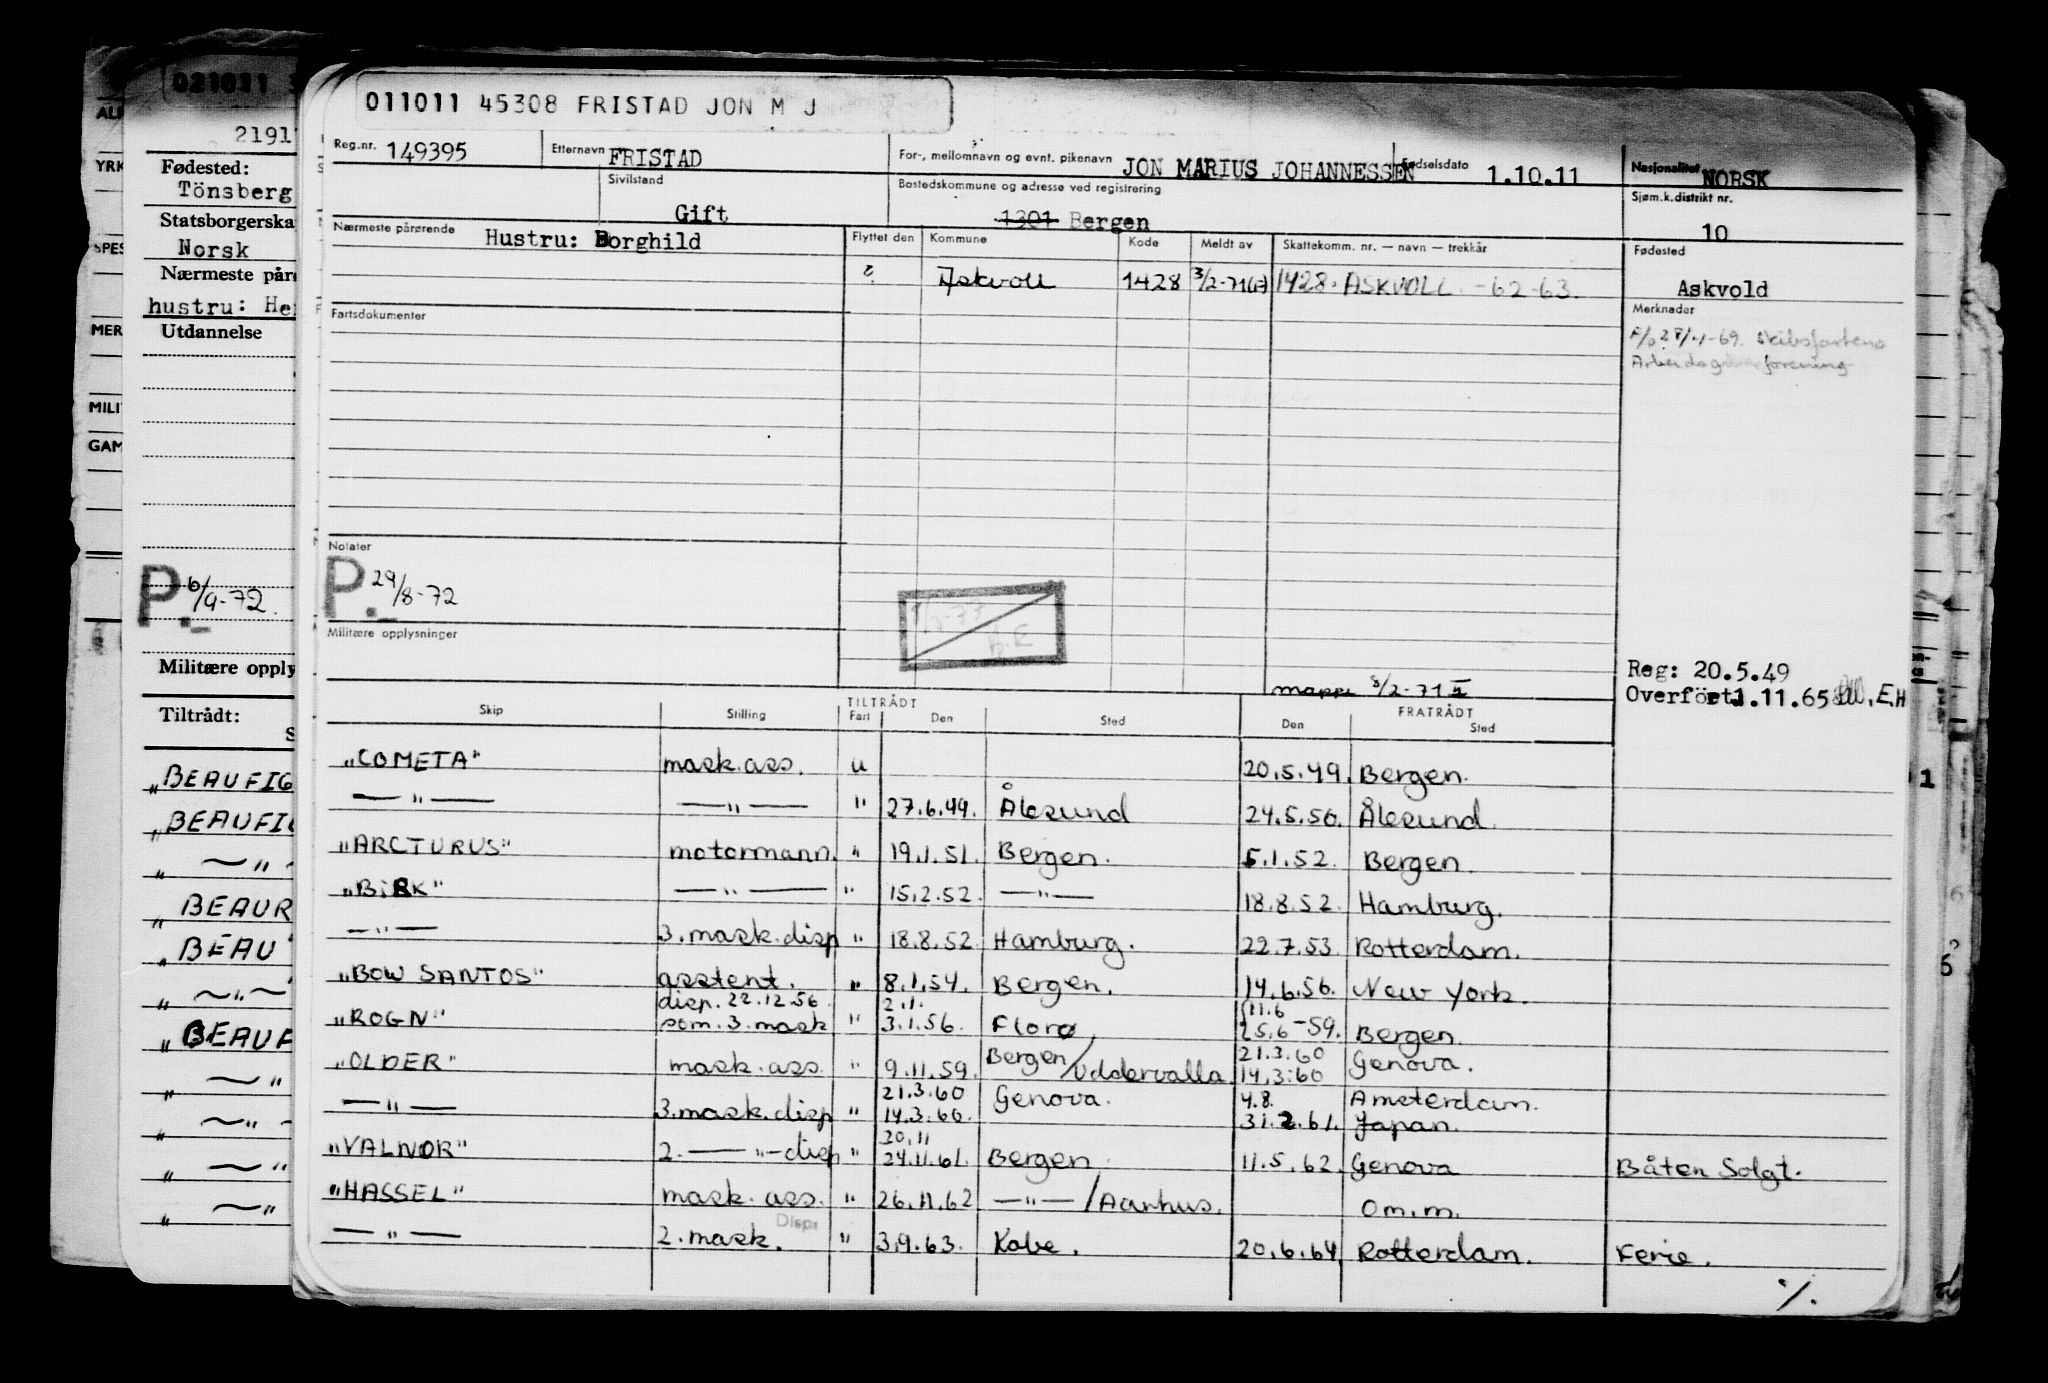 011011 45308 FRISTAD JON M J
Reg.nr. 149395 Etternavn FRISTAD For-, mellomnavn og evnt. pikenavn JON MARIUS JOHANNESSEN Fødselsdato 1.10.11 Nasjonalitet NORSK
Sivilstand Gift Bostedskommune og adresse ved registrering 1301 Bergen Sjøm.k.distrikt nr. 10
Nærmeste pårørende Hustru: Borghild Flyttet den Kommune Kode Meldt av Skattekomm. nr. — navn — trekkår Fødested
? Askvoll 1428 3/2-71 1428. ASKVOLL. -62-63. Askvold
Fartsdokumenter Merknader
-69. Skibsfartens
Arbeidsgiverforening
Notater
P. 29/8-72
Militære opplysninger
Reg: 20.5.49
mappe 8/2-71 Overført 1.11.65 E.H
Skip Stilling TILTRÅDT Fart Den Sted FRATRÅDT Den Sted
"COMETA" mask.ass. u 20.5.49. Bergen.
— " — — " — " 27.6.49. Ålesund 24.5.50. Ålesund.
"ARCTURUS" motormann. " 19.1.51. Bergen. 5.1.52. Bergen.
"BIRK" — " — " 15.2.52. — " — 18.8.52. Hamburg.
— " — 3.mask.disp " 18.8.52. Hamburg. 22.7.53. Rotterdam.
"BOW SANTOS" asstent. " 8.1.54. Bergen. 14.6.56. New York.
disp. 22.12.56. 2.1. 11.6
"ROGN" som. 3. mask " 3.1.56. Florø, 25.6-59. Bergen.
"OLDER" mask.ass. " 9.11.59. Bergen/Uddevalla. 21.3.60 14.3.60 Genova.
— " — 3.mask.disp " 21.3.60 14.3.60. Genova. 4.8. Amsterdam.
31.2.61. Japan.
"VALNOR" 2. — " — disp " 20.11 24.11.61. Bergen. 11.5.62. Genova Båten Solgt.
"HASSEL" mask. ass. " 26.11.62 — " — /Aarhus. Om.m.
— " — 2. mask. Disp: " 3.9.63. Kobe. 20.6.64. Rotterdam. Ferie.
./.
021011
2191
Fødested:
Tönsberg
Statsborgerska
Norsk
Nærmeste pår
hustru: He
Utdannelse
P. 6/9-72.
Militære opply
Tiltrådt:
"BEAUFIG
"BEAUFIG
— " —
"BEAUR
"BEAU
— " —
"BEAUF
— "
— " —
— "
— "
YRK
SPES
MER
MILI
GAM